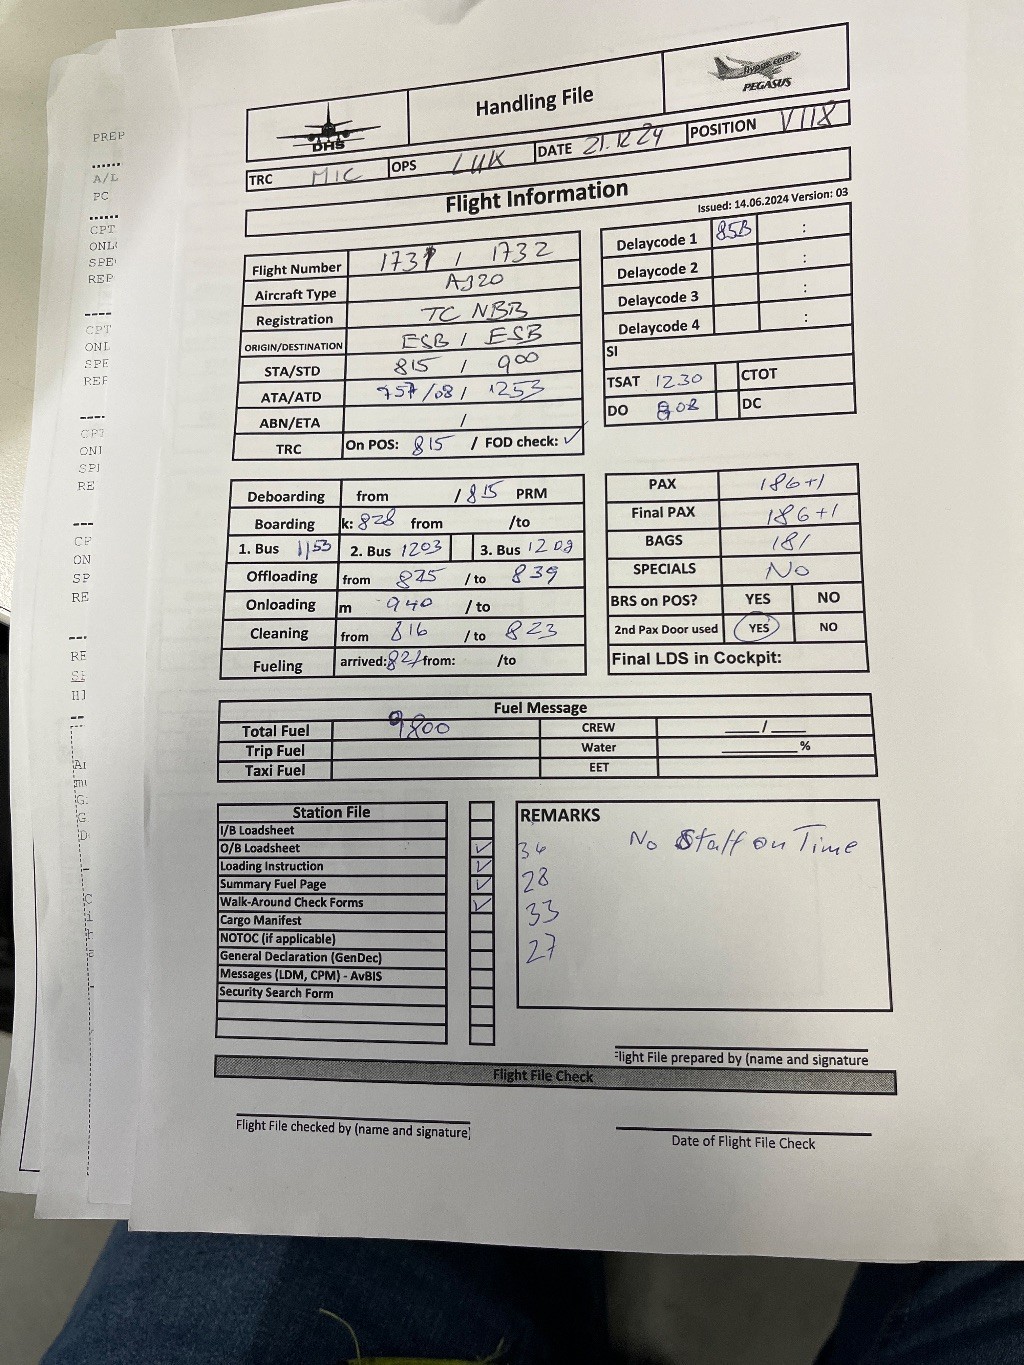 DHS
Handling File
flypgs.com
PEGASUS
TRC MIC OPS LUK DATE 21.12.24 POSITION V118
Flight Information
Issued: 14.06.2024 Version: 03
Flight Number 1731 / 1732
Aircraft Type A320
Registration TC NBB
ORIGIN/DESTINATION ESB / ESB
STA/STD 815 / 900
ATA/ATD 757/08 / 1253
ABN/ETA /
TRC On POS: 815 / FOD check: ✓
Delaycode 1 85B :
Delaycode 2 :
Delaycode 3 :
Delaycode 4 :
SI
TSAT 1230 CTOT
DO 808 DC
Deboarding from / 815 PRM
Boarding k: 828 from /to
1. Bus 1153 2. Bus 1203 3. Bus 1208
Offloading from 825 / to 839
Onloading m 940 / to
Cleaning from 816 / to 823
Fueling arrived: 821 from: /to
PAX 186+1
Final PAX 186+1
BAGS 181
SPECIALS No
BRS on POS? YES NO
2nd Pax Door used YES NO
Final LDS in Cockpit:
Fuel Message
Total Fuel 9800 CREW ____/____
Trip Fuel Water ________%
Taxi Fuel EET
Station File
I/B Loadsheet
O/B Loadsheet ✓
Loading Instruction ✓
Summary Fuel Page ✓
Walk-Around Check Forms ✓
Cargo Manifest
NOTOC (if applicable)
General Declaration (GenDec)
Messages (LDM, CPM) - AvBIS
Security Search Form
REMARKS
No Staff on Time
36
28
33
27
Flight File prepared by (name and signature
Flight File Check
Flight File checked by (name and signature)
Date of Flight File Check
PREP
A/L
PC
CPT
ONL
SPE
REP
CPT
ONL
SPE
REF
CPT
ONI
SPI
RE
CP
ON
SP
RE
RE